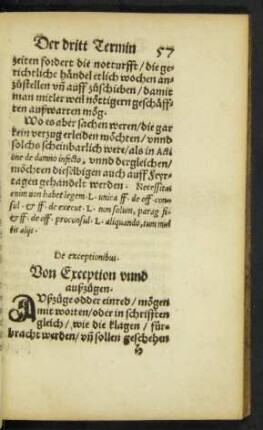 Der dritt Termin 57
zeiten fordert die notturfft / die ge-
richtliche händel etlich wochen an-
zůstellen vñ auff zůschieben / damit
man mitler weil nöttigern geschäff-
ten auffwarten mög.
Wo es aber sachen weren / die gar
kein verzug erleiden möchten / vnnd
solchs scheinbarlich were / als in Acti
one de damno infecto, vnnd dergleichen /
möchten dieselbigen auch auff Feyr-
tagen gehandelt werden. Necessitas
enim non habet legem. L. unica ff. de off. con-
sul. & ff. de execut. L. non solum, parag. fi
& ff. de off. proconsul. L. aliquando, cum mul
tis alijs.
De exceptionibus.
Von Exception vnnd
außzügen.
AVßzüge odder einred / mögen
mit worten / oder in schrifften
gleich / wie die klagen / für-
bracht werden / vñ sollen geschehen